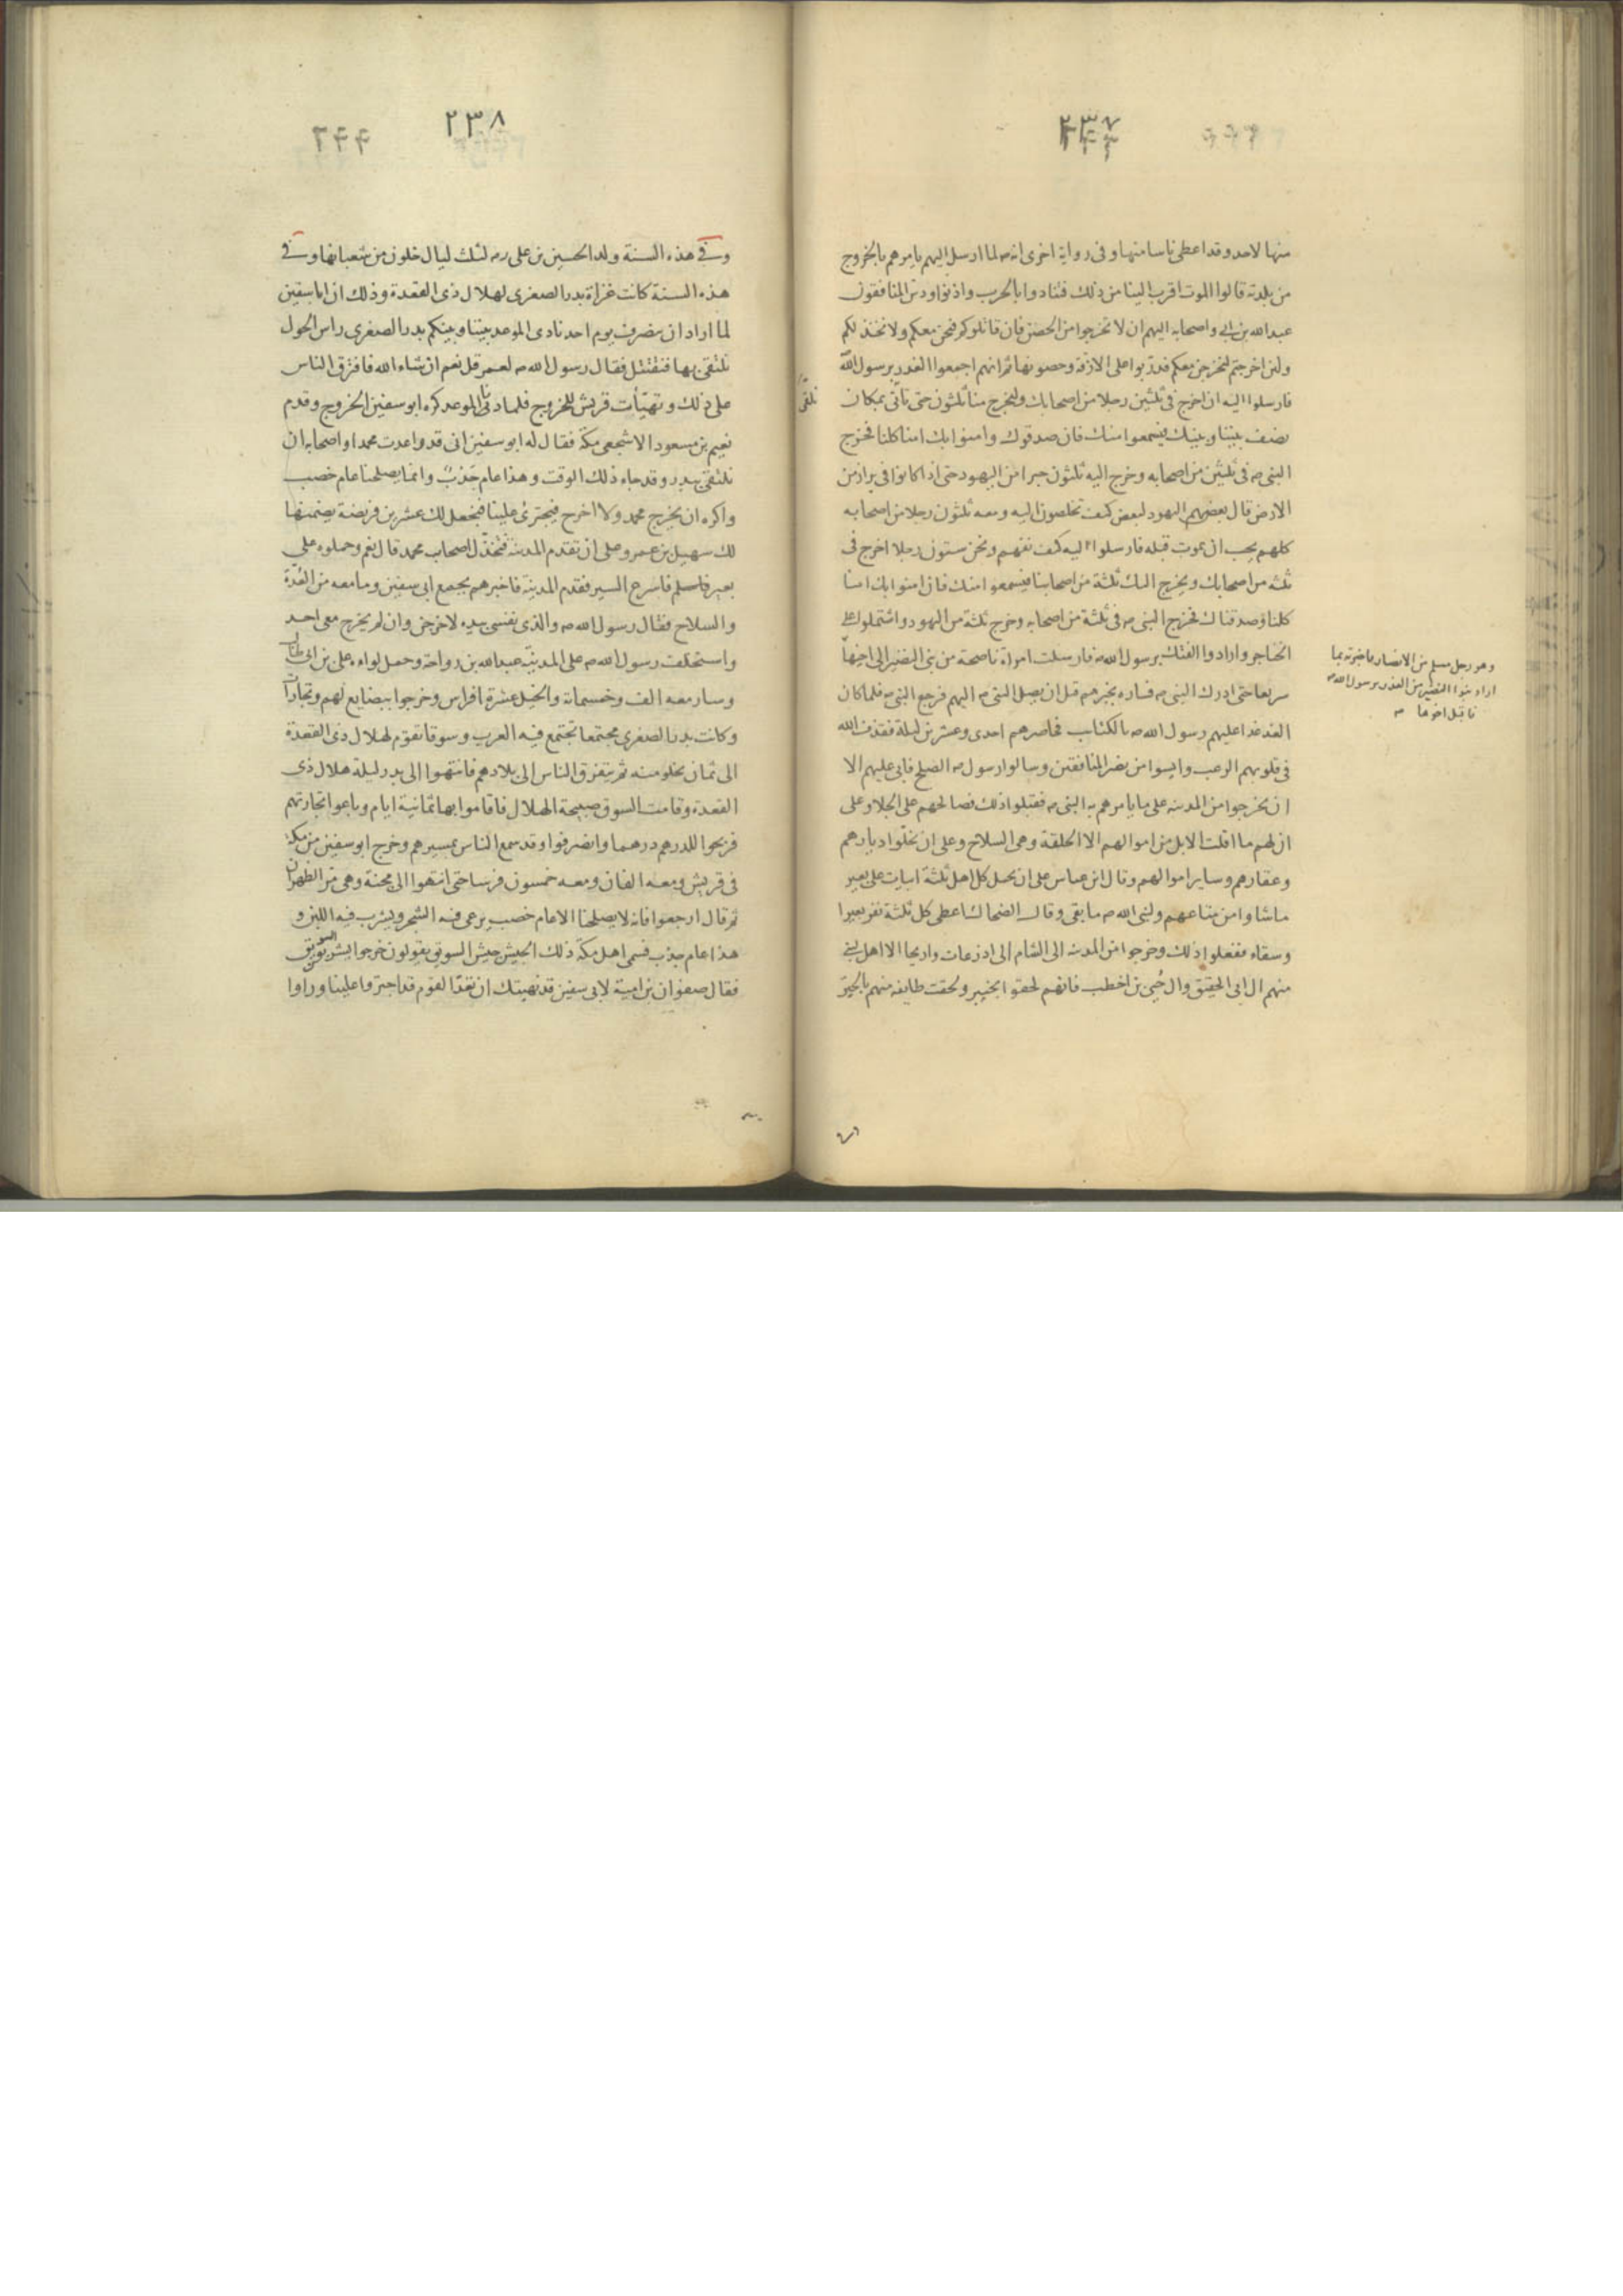 ٢٣٧
منها لاحد وقد اعطى ناسا منها وفى رواية اخرى انه صه لما ارسل اليهم يامرهم بالخروج
من بلدته قالوا الموت اقرب الينا من ذلك فتنادوا بالحرب واذنوا ودس المنافقون
عبدالله بن ابى واصحابه اليهم ان لا تخرجوا من الحصن فان قاتلوكم فنحن معكم ولا نخذلكم
ولئن اخرجتم لنخرجن معكم فدربوا على الازقة وحصونها ثم انهم اجمعوا الغدر برسول الله
فارسلوا اليه ان اخرج فى ثلثين رجلا من اصحابك وليخرج منا ثلثون حتى ناتى بمكان
نلتقى
نصف بيننا وبينك فيسمعوا منك فان صدقوك وامنوا بك امنا كلنا فخرج
النبى صه فى ثلثين من اصحابه وخرج اليه ثلثون حبرا من اليهود حتى اذا كانوا فى براز من
الارض قال بعضهم اليهود لبعض كيف تخلصون اليه ومعه ثلثون رجلا من اصحابه
كلهم يحب ان يموت قبله فارسلوا اليه كيف نفهم ونحن ستون رجلا اخرج فى
ثلثه من اصحابك ويخرج اليك ثلثة من اصحابنا فيسمعوا منك فان امنوا بك امنا
كلنا وصدقناك فخرج النبى صه فى ثلثة من اصحابه وخرج ثلثة من اليهود واشتملوا على
الخناجر وارادوا الفتك برسول الله صه فارسلت امراة ناصحة من بنى النضير الى اخيها
وهو رجل مسلم من الانصار فاخبرته بما
اراد بنوا النضير من الغدر برسول الله صه
فاقبل اخوها صه
سريعا حتى ادرك النبى صه فساره بخبرهم قبل ان يصل النبى صه اليهم فرجع النبى صه فلما كان
الغد غدا عليهم رسول الله صه بالكتايب فحاصرهم احدى وعشرين ليلة فقذف الله
فى قلوبهم الرعب وايسوا من نصر المنافقين وسالوا رسول صه الصلح فابى عليهم الا
ان يخرجوا من المدينه على ما يامرهم به النبى صه فقبلوا ذلك فصالحهم على الجلاء وعلى
ان لهم ما اقلت الابل من اموالهم الا الحلقة وهى السلاح وعلى ان يخلوا ديارهم
وعقارهم وساير اموالهم وقال ابن عباس على ان يحمل كل اهل ثلثة ابيات على بعير
ماشاوا من متاعهم ولنبى الله صه ما بقى وقال الضحاك اعطى كل ثلثة نفر بعيرا
وسقاء ففعلوا ذلك وخرجوا من المدينه الى الشام الى اذرعات واريحا الا اهل بيتى
منهم ال ابى الحقيق وال حُيى بن اخطب فانهم لحقوا بخيبر ولحقت طايفه منهم بالحيرة
٢٣٨
٢۴۴
وفى هذه السنة ولد الحسين بن على رضه لثلث ليال خلون من شعبانها وفى
هذه السنة كانت غزاة بدر الصغرى لهلال ذى القعدة وذلك ان ابا سفين
لما اراد ان ينصرف يوم احد نادى الموعد بيننا وبينكم بدر الصغرى راس الحول
نلتقى بها فنقتتل فقال رسول الله صه لعمر قل نعم ان شاء الله فافترق الناس
على ذلك وتهيأت قريش للخروج فلما دنى الموعد كره ابو سفين الخروج وقدم
نعيم بن مسعود الاشجعى مكة فقال له ابو سفين انى قد واعدت محمدا واصحابه ان
نلتقى ببدر وقد جاء ذلك الوقت وهذا عام جَدْبٌ وانما يصلحنا عام خصب
واكره ان يخرج محمد ولا اخرج فيجترئ علينا فنجعل لك عشرين فريضة يضمنها
لك سهيل بن عمرو على ان تقدم المدينة فتخذل اصحاب محمد قال نعم وحملوه على
بعير فاسرع السير فقدم المدينة فاخبرهم بجمع ابى سفين وما معه من العُدَّة
والسلاح فقال رسول الله صه والذى نفسى بيده لاخرجن وان لم يخرج معى احد
واستخلف رسول الله صه على المدينة عبدالله بن رواحة وحمل لواءه على بن ابى طالب
وسار معه الف وخمسمائة والخيل عشرة افراس وخرجوا ببضايع لهم وتجارات
وكانت بدر الصغرى مجتمعا تجتمع فيه العرب وسوقا تقوم لهلال ذى القعدة
الى ثمان تخلو منه ثم يتفرق الناس الى بلادهم فانتهوا الى بدر ليلة هلال ذى
القعدة وقامت السوق صبيحة الهلال فاقاموا بها ثمانية ايام وباعوا تجارتهم
فربحوا للدرهم درهما وانصرفوا وقد سمع الناس بمسيرهم وخرج ابو سفين من مكة
فى قريش ومعه الفان ومعه خمسون فرسا حتى انتهوا الى مجنة وهى مر الظهران
ثم قال ارجعوا فانه لا يصلحنا الا عام خصب يرعى فيه الشجر ويشرب فيه اللبن و
هذا عام جدب فسمى اهل مكة ذلك الجيش جيش السويق يقولون خرجوا يشربون السويق
فقال صفوان بن امية لابى سفين قد نهيتك ان تعد القوم قد اجترؤا علينا وراوا